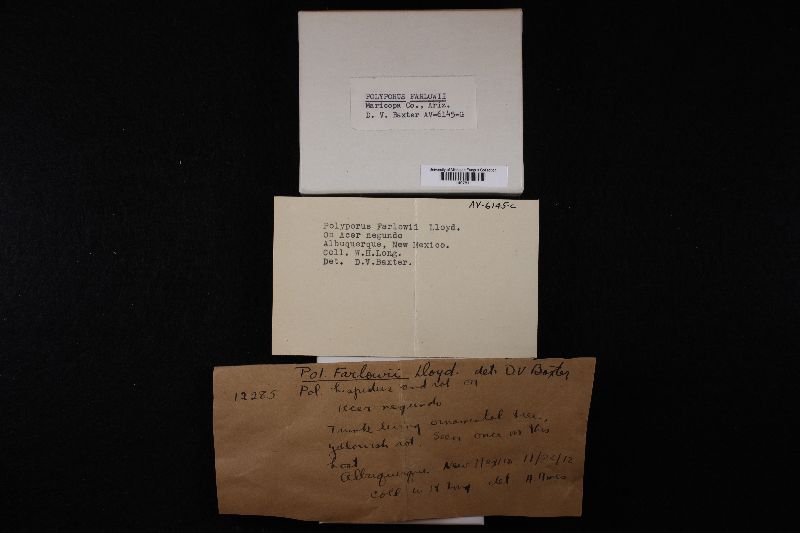 POLYPORUS FARLOWII
Maricopa Co., Ariz.
D. V. Baxter AV-6145-G
University of Michigan Fungus Collection
AV-6145-C
Polyporus Farlowii Lloyd.
On Acer negundo
Albuquerque, New Mexico.
Coll. W.H.Long.
Det. D.V.Baxter.
Pol. Farlowii Lloyd. det. D V Baxter
12285 Pol. hispidus and rot on
Acer negundo
Trunk living ornamental tree,
yellowish rot Seen once on this
host
Albuquerque New Mexico
Coll W H Long det